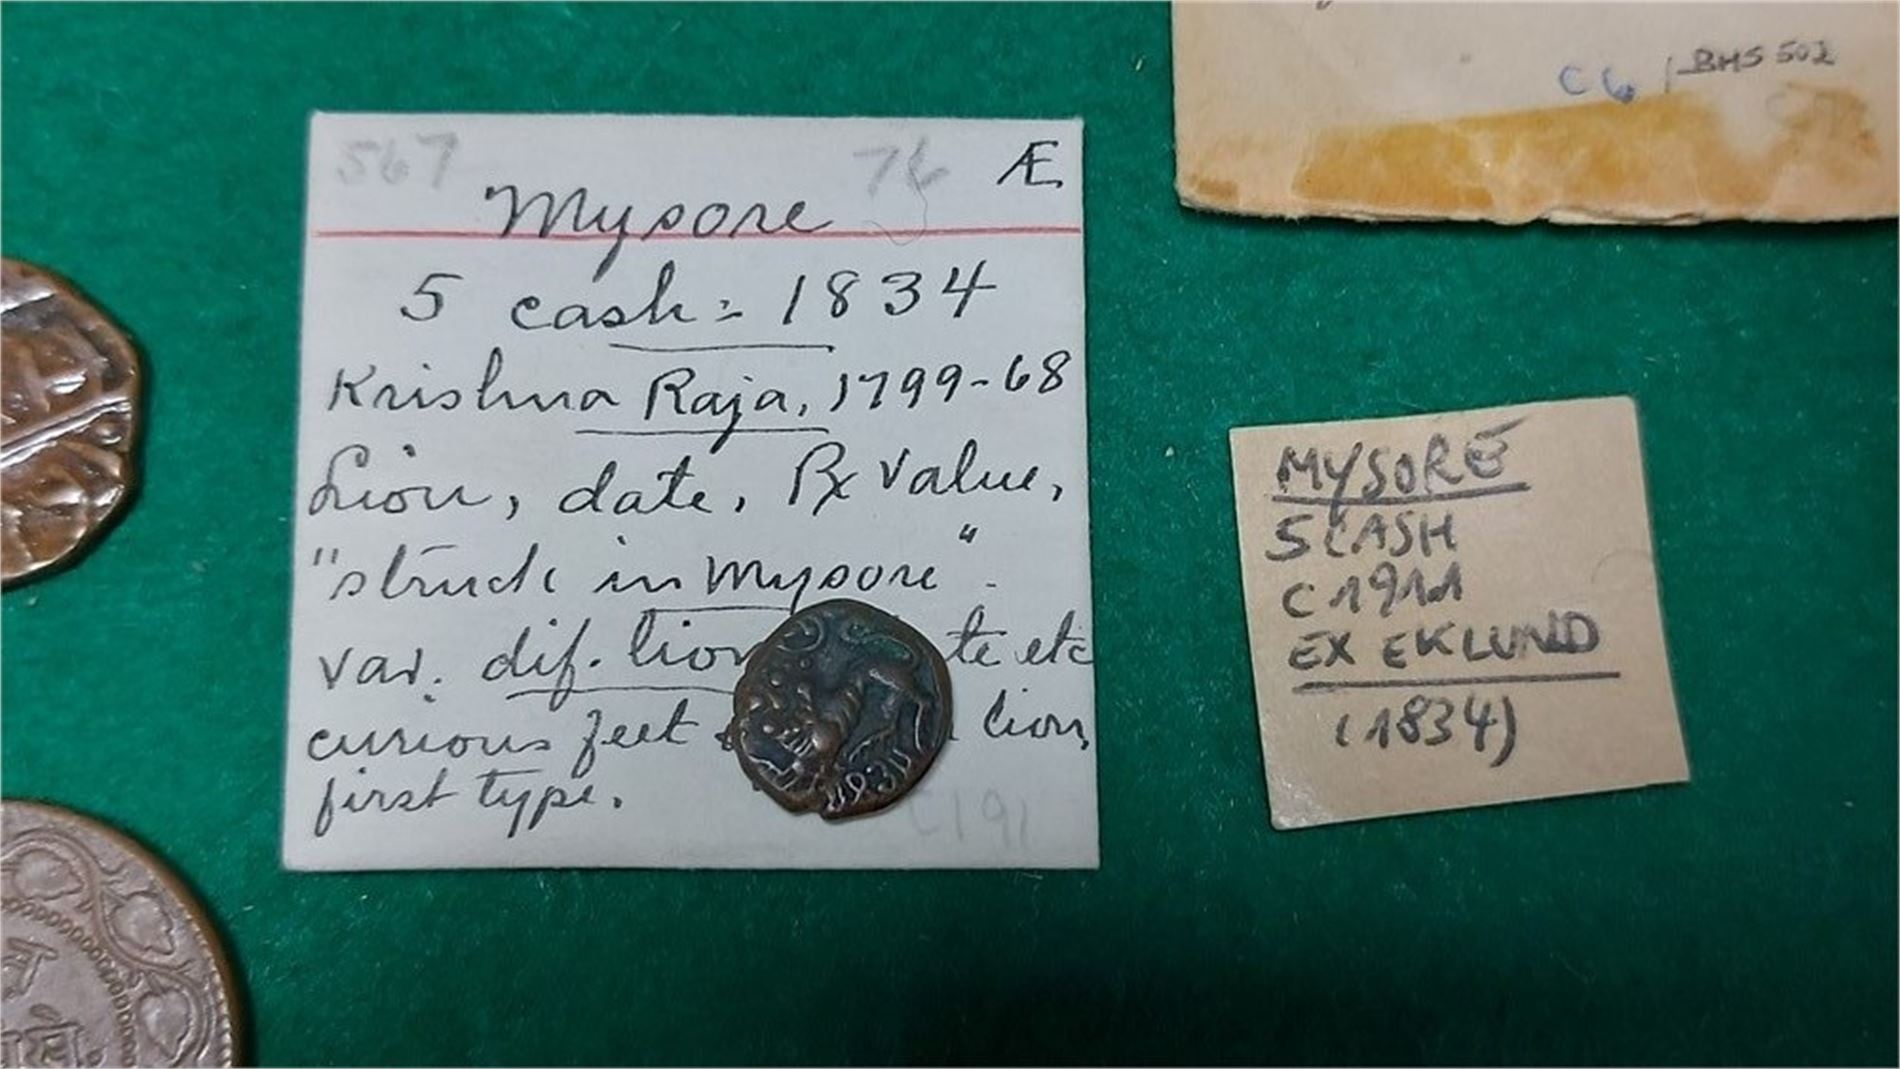 567 76 Æ
Mysore
5 cash = 1834
Krishna Raja, 1799-68
Lion, date, Rx value,
"struck in Mysore".
var. dif. lion te etc
curious feet lion,
first type.
C191
C6 BHS 502
MYSORE
5 CASH
C191.1
EX EKLUND
(1834)